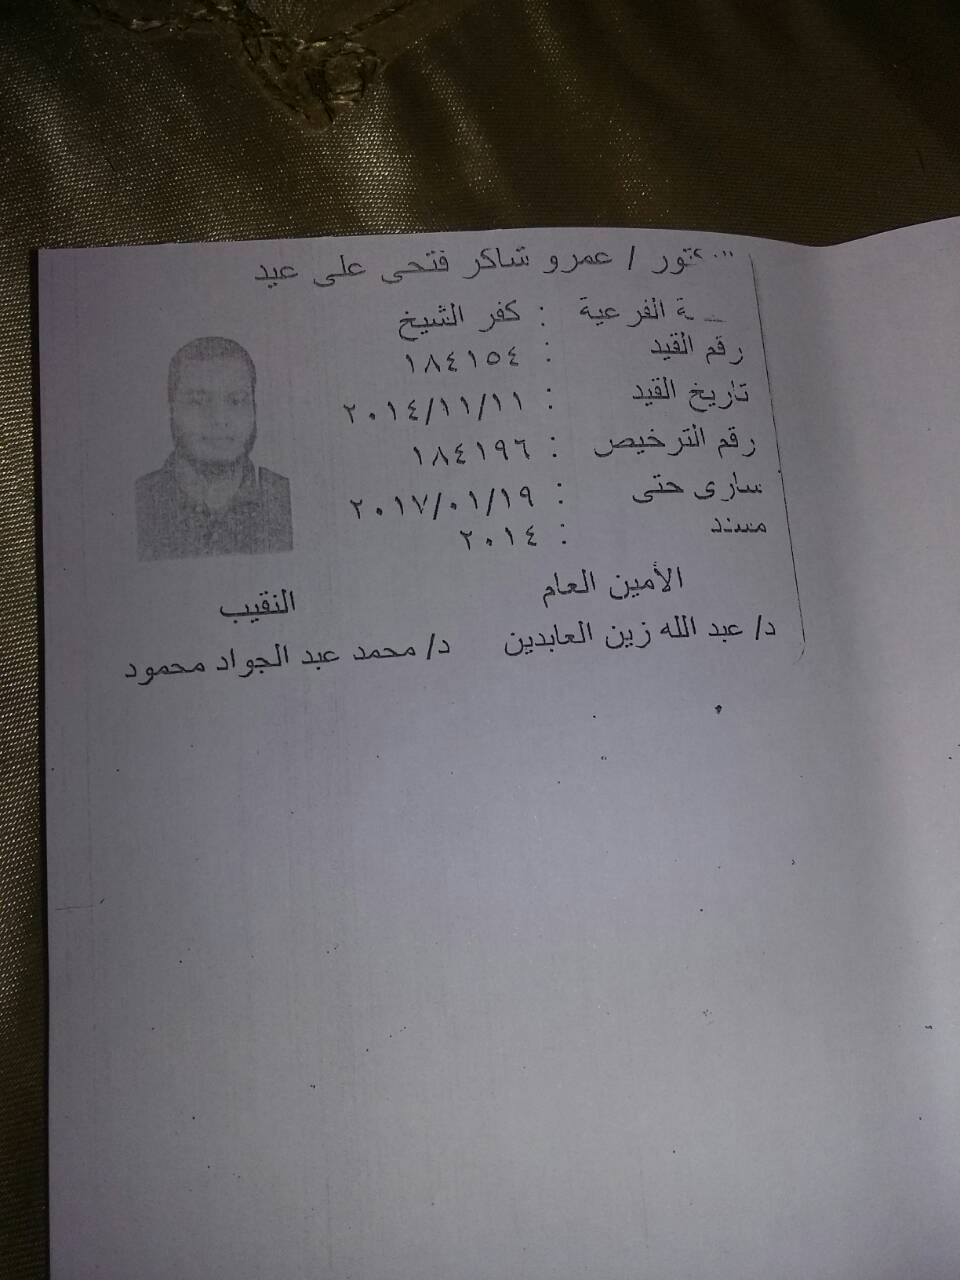 عمرو شاكر فتحى على عيد
الفرعية : كفر الشيخ
رقم القيد : ١٨٤١٥٤
تاريخ القيد : ٢٠١٤/١١/١١
رقم الترخيص : ١٨٤١٩٦
سارى حتى : ٢٠١٧/٠١/١٩
مسدد : ٢٠١٤
الأمين العام النقيب
د/ عبد الله زين العابدين د/ محمد عبد الجواد محمود